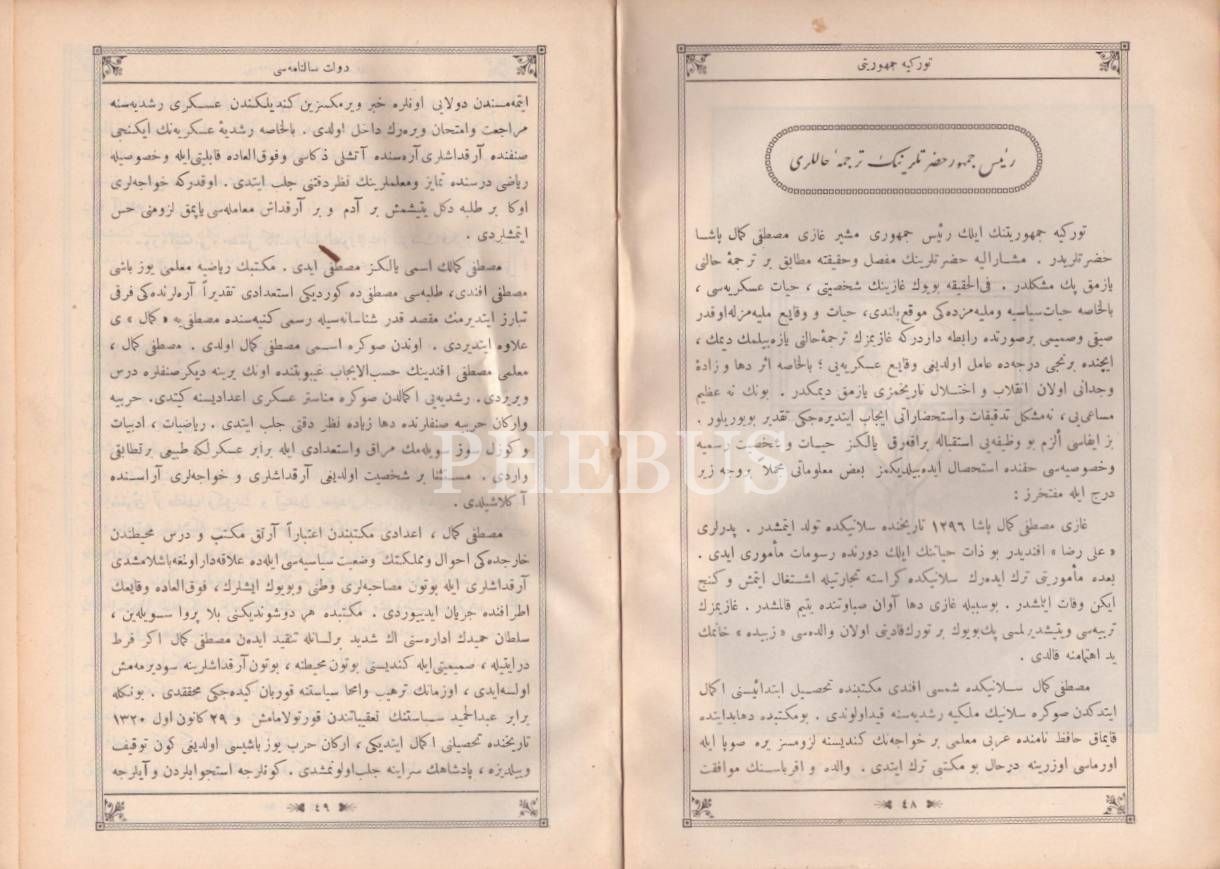 توركیه جمهوریتی
رئیس جمهور حضرتلرینك ترجمهٔ حاللری
توركیه جمهوریتنك ایلك رئیس جمهوری مشیر غازی مصطفی كمال پاشا
حضرتلریدر . مشارالیه حضرتلرینك مفصل وحقیقته مطابق بر ترجمهٔ حالنی
یازمق پك مشكلدر . فی‌الحقیقه بویوك غازینك شخصیتی ، حیات عسكریه‌سی ،
بالخاصه حیات سیاسیه وملیه‌مزده‌كی موقع بلندی، حیات و وقایع ملیه‌مزله اوقدر
صیقی وصمیمی برصورتده رابطه داردركه غازیمزك ترجمهٔ حالنی یازه‌بیلمك دیمك ،
ایچنده برنجی درجه‌ده عامل اولدیغی وقایع عسكریه‌یی ؛ بالخاصه اثر دها و زادهٔ
وجدانی اولان انقلاب و اختلال تاریخمزی یازمق دیمكدر . بونك نه عظیم
مساعی‌یی ، نه‌مشكل تدقیقات واستحضاراتی ایجاب ایتدیره‌جكی تقدیر بویوریلور .
بز ایفاسی ألزم بو وظیفه‌یی استقباله براقه‌رق یالكز حیات و شخصیت رسمیه
وخصوصیه‌سی حقنده استحصال ایده‌بیلدیكمز بعض معلوماتی مجملاً بروجه زیر
درج ایله مفتخرز :
غازی مصطفی كمال پاشا ۱۲۹۶ تاریخنده سلانیكده تولد ایتمشدر . پدرلری
« علی رضا » افندیدر بو ذات حیاتنك ایلك دورنده رسومات مأموری ایدی .
بعده مأموریتی ترك ایده‌رك سلانیكده كراسته تجارتیله اشتغال ایتمش و كنج
ایكن وفات ایلمشدر . بوسببله غازی دها آوان صباوتنده یتیم قالمشدر . غازیمزك
تربیه‌سی ویتیشدیرلمسی پك‌بویوك بر تورك‌قادینی اولان والده‌سی « زبیده » خانمك
ید اهتمامنه قالدی .
مصطفی كمال سلانیكده شمسی افندی مكتبنده تحصیل ابتدائیسنی اكمال
ایتدكدن صوكره سلانیك ملكیه رشدیه‌سنه قیداولوندی . بومكتبده دهابدایتده
قایماق حافظ نامنده عربی معلمی بر خواجه‌نك كندیسنه لزومسز یره صوپا ایله
اورماسی اوزرینه درحال بو مكتبی ترك ایتدی . والده و اقرباسنك موافقت
٤٨
دولت سالنامه‌سی
ایتمه‌مسندن دولایی اونلره خبر ویرمكسزین كندیلكندن عسكری رشدیه‌سنه
مراجعت وامتحان ویره‌رك داخل اولدی . بالخاصه رشدیهٔ عسكریه‌نك ایكنجی
صنفنده آرقداشلری آره‌سنده آتشلی ذكاسی وفوق‌العاده قابلیتی‌ایله وخصوصیله
ریاضی درسنده تمایز ومعلملرینك نظردقتنی جلب ایتدی . اوقدركه خواجه‌لری
اوكا بر طلبه دكل یتیشمش بر آدم و بر آرقداش معامله‌سی یاپمق لزومنی حس
ایتمشلردی .
مصطفی كمالك اسمی یالكز مصطفی ایدی . مكتبك ریاضیه معلمی یوز باشی
مصطفی افندی، طلبه‌سی مصطفی‌ده كوردیكی استعدادی تقدیراً آره‌لرنده‌كی فرقی
تبارز ایتدیرمك مقصد قدر شناسانه‌سیله رسمی كنیه‌سنده مصطفی‌یه « كمال » ی
علاوه ایتدیردی . اوندن صوكره اسمی مصطفی كمال اولدی . مصطفی كمال ،
معلمی مصطفی افندینك حسب‌الایجاب غیبوبتنده اونك یرینه دیكرصنفلره درس
ویریردی. رشدیه‌یی اكمالدن صوكره مناستر عسكری اعدادیسنه كیتدی. حربیه
واركان حربیه صنفلرنده دها زیاده نظر دقتی جلب ایتدی . ریاضیات ، ادبیات
و كوزل سوز سویله‌مك مراقی واستعدادی ایله برابر عسكرلكه طبیعی برتطابقی
واردی . مستثنا بر شخصیت اولدیغی آرقداشلری و خواجه‌لری آراسنده
آكلاشیلدی .
مصطفی كمال ، اعدادی مكتبندن اعتباراً آرتق مكتب و درس محیطندن
خارجده‌كی احوال ومملكتك وضعیت سیاسیه‌سی ایله‌ده علاقه‌دار اولمغه‌باشلامشدی
آرقداشلری ایله بوتون مصاحبه‌لری وطنی وبویوك ایشلرك ، فوق‌العاده وقایعك
اطرافنده جریان ایدییوردی . مكتبده هر دوشوندیكنی بلا پروا سویله‌ین ،
سلطان حمیدك اداره‌سنی اك شدید برلسانله تنقید ایدەن مصطفی كمال اكر فرط
درایتیله ، صمیمیتی‌ایله كندیسنی بوتون محیطنه ، بوتون آرقداشلرینه سودیرمه‌مش
اولسه‌ایدی ، اوزمانك ترهیب وامحا سیاستنه قوربان كیده‌جكی محققدی . بونكله
برابر عبدالحمید سیاستنك تعقیباتندن قورتولامامش و ۲۹ كانون اول ۱۳۲۰
تاریخنده تحصیلنی اكمال ایتدیكی ، اركان حرب یوز باشیسی اولدیغی كون توقیف
وییلدیزه ، پادشاهك سراینه جلب‌اولونمشدی . كونلرجه استجوابلردن و آیلرجه
٤٩
PHEBUS